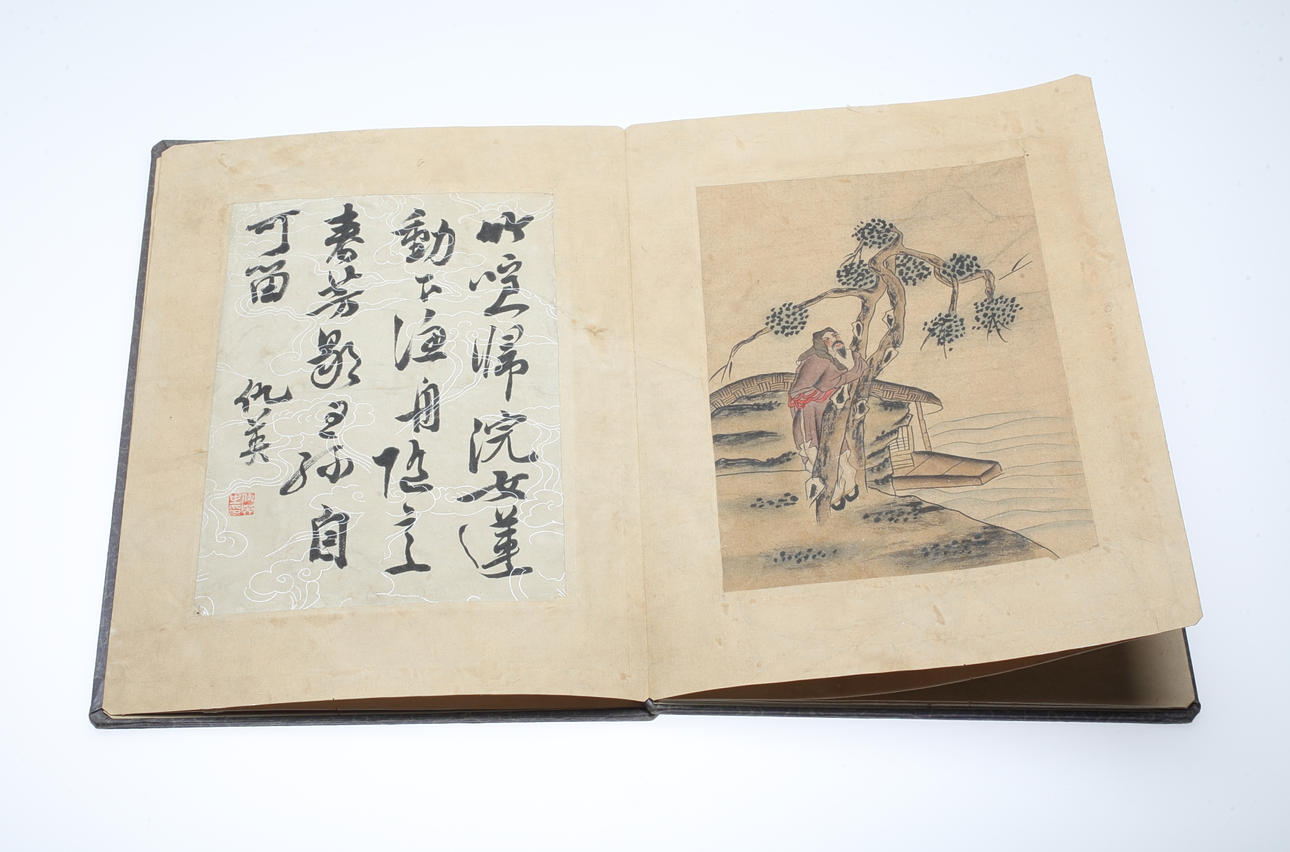 竹喧歸浣女蓮
動下漁舟随意
春芳歇王孫自
可留
仇英